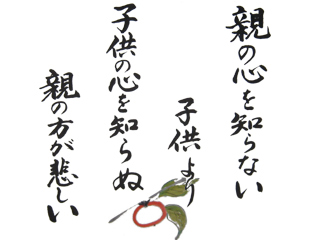 親の心を知らない
子供より
子供の心を知らぬ
親の方が悲しい